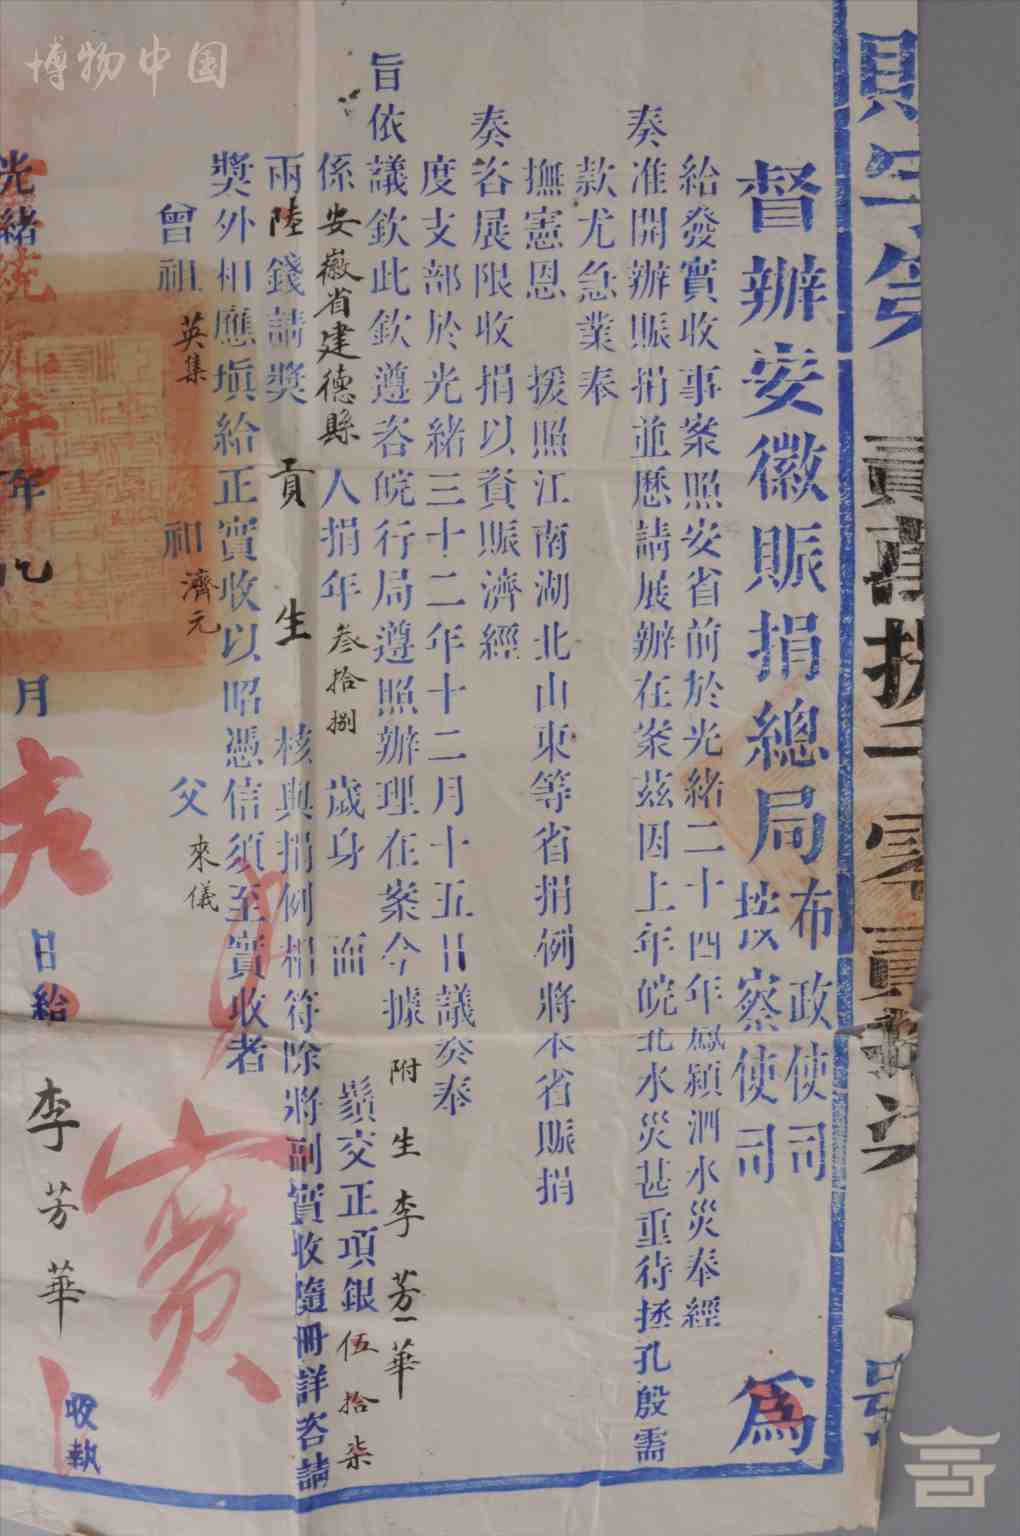 博物中国
督辦安徽賑捐總局布政使司按察使司為
給發實收事案照安省前於光緒二十四年鳳潁泗水災奉經
奏准開辦賑捐並歷請展辦在案茲因上年皖北水災甚重待拯孔殷需
款尤急業奉
撫憲恩援照江南湖北山東等省捐例將本省賑捐
奏咨展限收捐以資賑濟經
度支部於光緒三十二年十二月十五日議奏奉
旨依議欽此欽遵咨皖行局遵照辦理在案今據附生李芳華
係安徽省建德縣人捐年叁拾捌歲身面鬚交正項銀伍拾柒
兩陸錢請獎貢生核與捐例相符除將副實收隨冊詳咨請
獎外相應填給正實收以昭憑信須至實收者
曾祖英集祖濟元父來儀
光緒年月日給李芳華收執